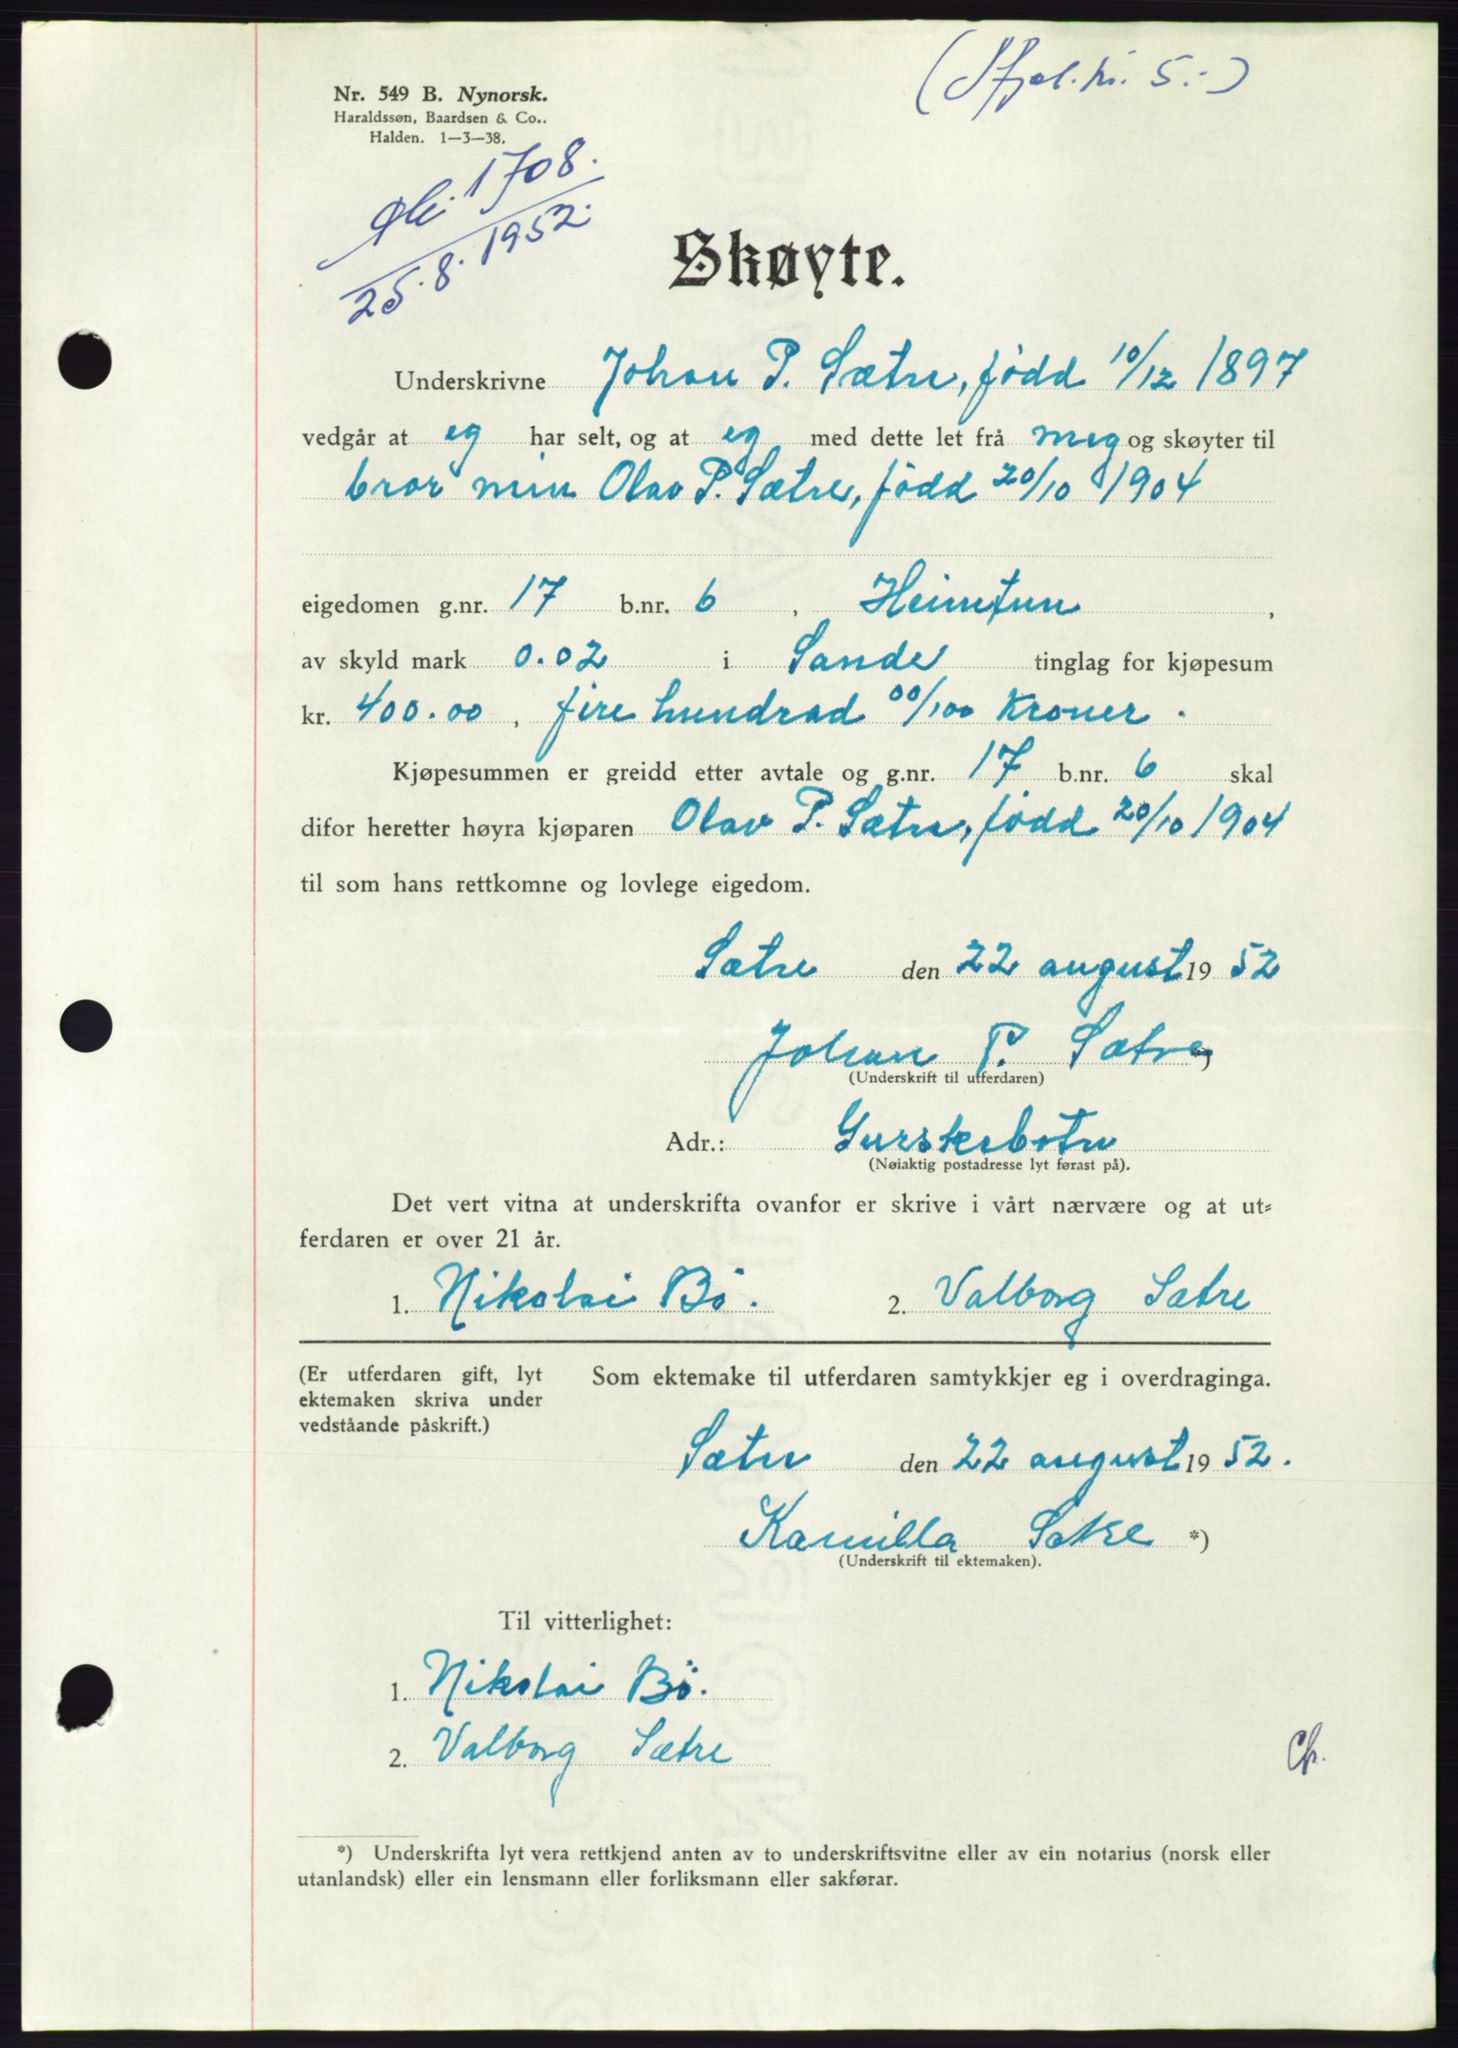 Nr. 549 B. Nynorsk.
Haraldssøn, Baardsen & Co..
Halden. 1—3—38.
kr. 5.-)
1708.
25.8.1952.
Skøyte.
Underskrivne Johan P. Sætre, fødd 10/12 1897
vedgår at eg har selt, og at eg med dette let frå meg og skøyter til
bror min Olav P. Sætre, fødd 20/10 1904
eigedomen g.nr. 17 b.nr. 6 , Heimtun ,
av skyld mark 0.02 i Sande tinglag for kjøpesum
kr. 400.00 , fire hundrad 00/100 Kroner .
Kjøpesummen er greidd etter avtale og g.nr. 17 b.nr. 6 skal
difor heretter høyra kjøparen Olav P. Sætre, fødd 20/10 1904
til som hans rettkomne og lovlege eigedom.
Sætre den 22 august 19 52
Johan P. Sætre *)
(Underskrift til utferdaren)
Adr.: Gurskebotn
(Nøiaktig postadresse lyt førast på).
Det vert vitna at underskrifta ovanfor er skrive i vårt nærvære og at ut-
ferdaren er over 21 år.
1. Nikolai Bø. 2. Valborg Sætre
(Er utferdaren gift, lyt Som ektemake til utferdaren samtykkjer eg i overdraginga.
ektemaken skriva under
vedståande påskrift.)
Sætre den 22 august 19 52.
Kamilla Sætre *)
(Underskrift til ektemaken).
Til vitterlighet:
1. Nikolai Bø.
2. Valborg Sætre
*) Underskrifta lyt vera rettkjend anten av to underskriftsvitne eller av ein notarius (norsk eller
utanlandsk) eller ein lensmann eller forliksmann eller sakførar.